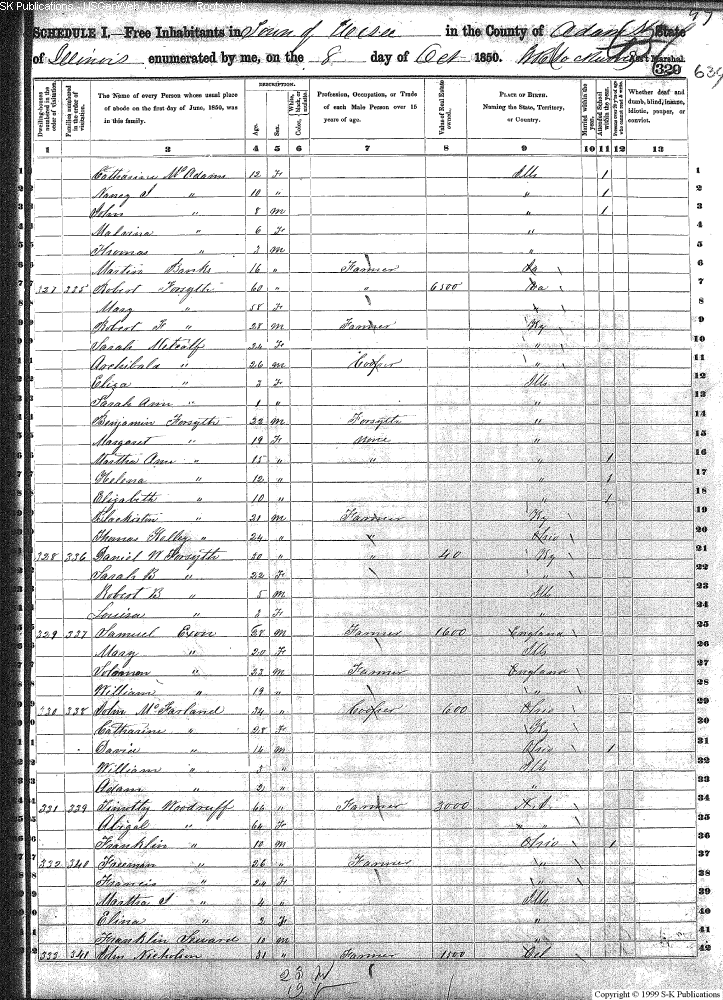 SK Publications - USGenWeb Archives - Rootsweb
97
SCHEDULE I.—Free Inhabitants in Town of Ursa in the County of Adams State
of Illinois enumerated by me, on the 8 day of Oct 1850. Ass't Marshal.
320 639
Dwelling-houses numbered in the order of visitation. Families numbered in the order of visitation. The Name of every Person whose usual place of abode on the first day of June, 1850, was in this family. DESCRIPTION. Age. Sex. Color, White, black, or mulatto. Profession, Occupation, or Trade of each Male Person over 15 years of age. Value of Real Estate owned. PLACE OF BIRTH. Naming the State, Territory, or Country. Married within the year. Attended School within the year. Persons over 20 y'rs of age who cannot read & write. Whether deaf and dumb, blind, insane, idiotic, pauper, or convict.
1 2 3 4 5 6 7 8 9 10 11 12 13
1 Catharine McAdams 12 F Ills 1 1
2 Nancy J " 10 " " 1 2
3 John " 8 m " 1 3
4 Malvina " 6 F " 4
5 Thomas " 2 m " 5
6 Martin Banks 16 " Farmer 6
7 327 335 Robert Forsyth 60 " " 6500 7
8 Mary " 58 F 8
9 Robert F " 28 m Farmer Ky 9
10 Sarah Metcalf 24 F " 10
11 Archibald " 26 m Cooper " 11
12 Eliza " 3 F Ills 12
13 Sarah Ann " 1 " " 13
14 Benjamin Forsyth 22 m Forsyth " 14
15 Margaret " 19 F None " 15
16 Martha Ann " 15 " " " 1 16
17 Helena " 12 " " 1 17
18 Elizabeth " 10 " " 1 18
19 Blackiston " 21 m Farmer Ky 19
20 Thomas Kelley " 24 " " Ohio 20
21 328 336 Daniel W Forsyth 30 " " 40 Ky 21
22 Sarah B " 22 F " 22
23 Robert B " 5 m Ills 23
24 Louisa " 2 F " 24
25 329 337 Samuel Exon 28 m Farmer 1600 England 25
26 Mary " 20 F Ills 26
27 Solomon " 23 m Farmer England 27
28 William " 19 " " 28
29 330 338 John McFarland 34 " Cooper 600 Ohio 29
30 Catharine " 28 F Ky 30
31 David " 14 m Ohio 1 31
32 William " 3 " Ills 32
33 Adam " 2 " " 33
34 331 339 Timothy Woodruff 66 " Farmer 3000 N.J. 34
35 Abigal " 64 F " " 35
36 Franklin " 10 m Ohio 1 36
37 332 340 Freeman " 26 " Farmer " 37
38 Francis " 24 F " 38
39 Martha J " 4 " Ills 39
40 Elina " 2 F " 40
41 Franklin Seward 10 m " 41
42 333 341 John Nicholson 31 " Farmer 1500 Del 42
23
Copyright © 1999 S-K Publications